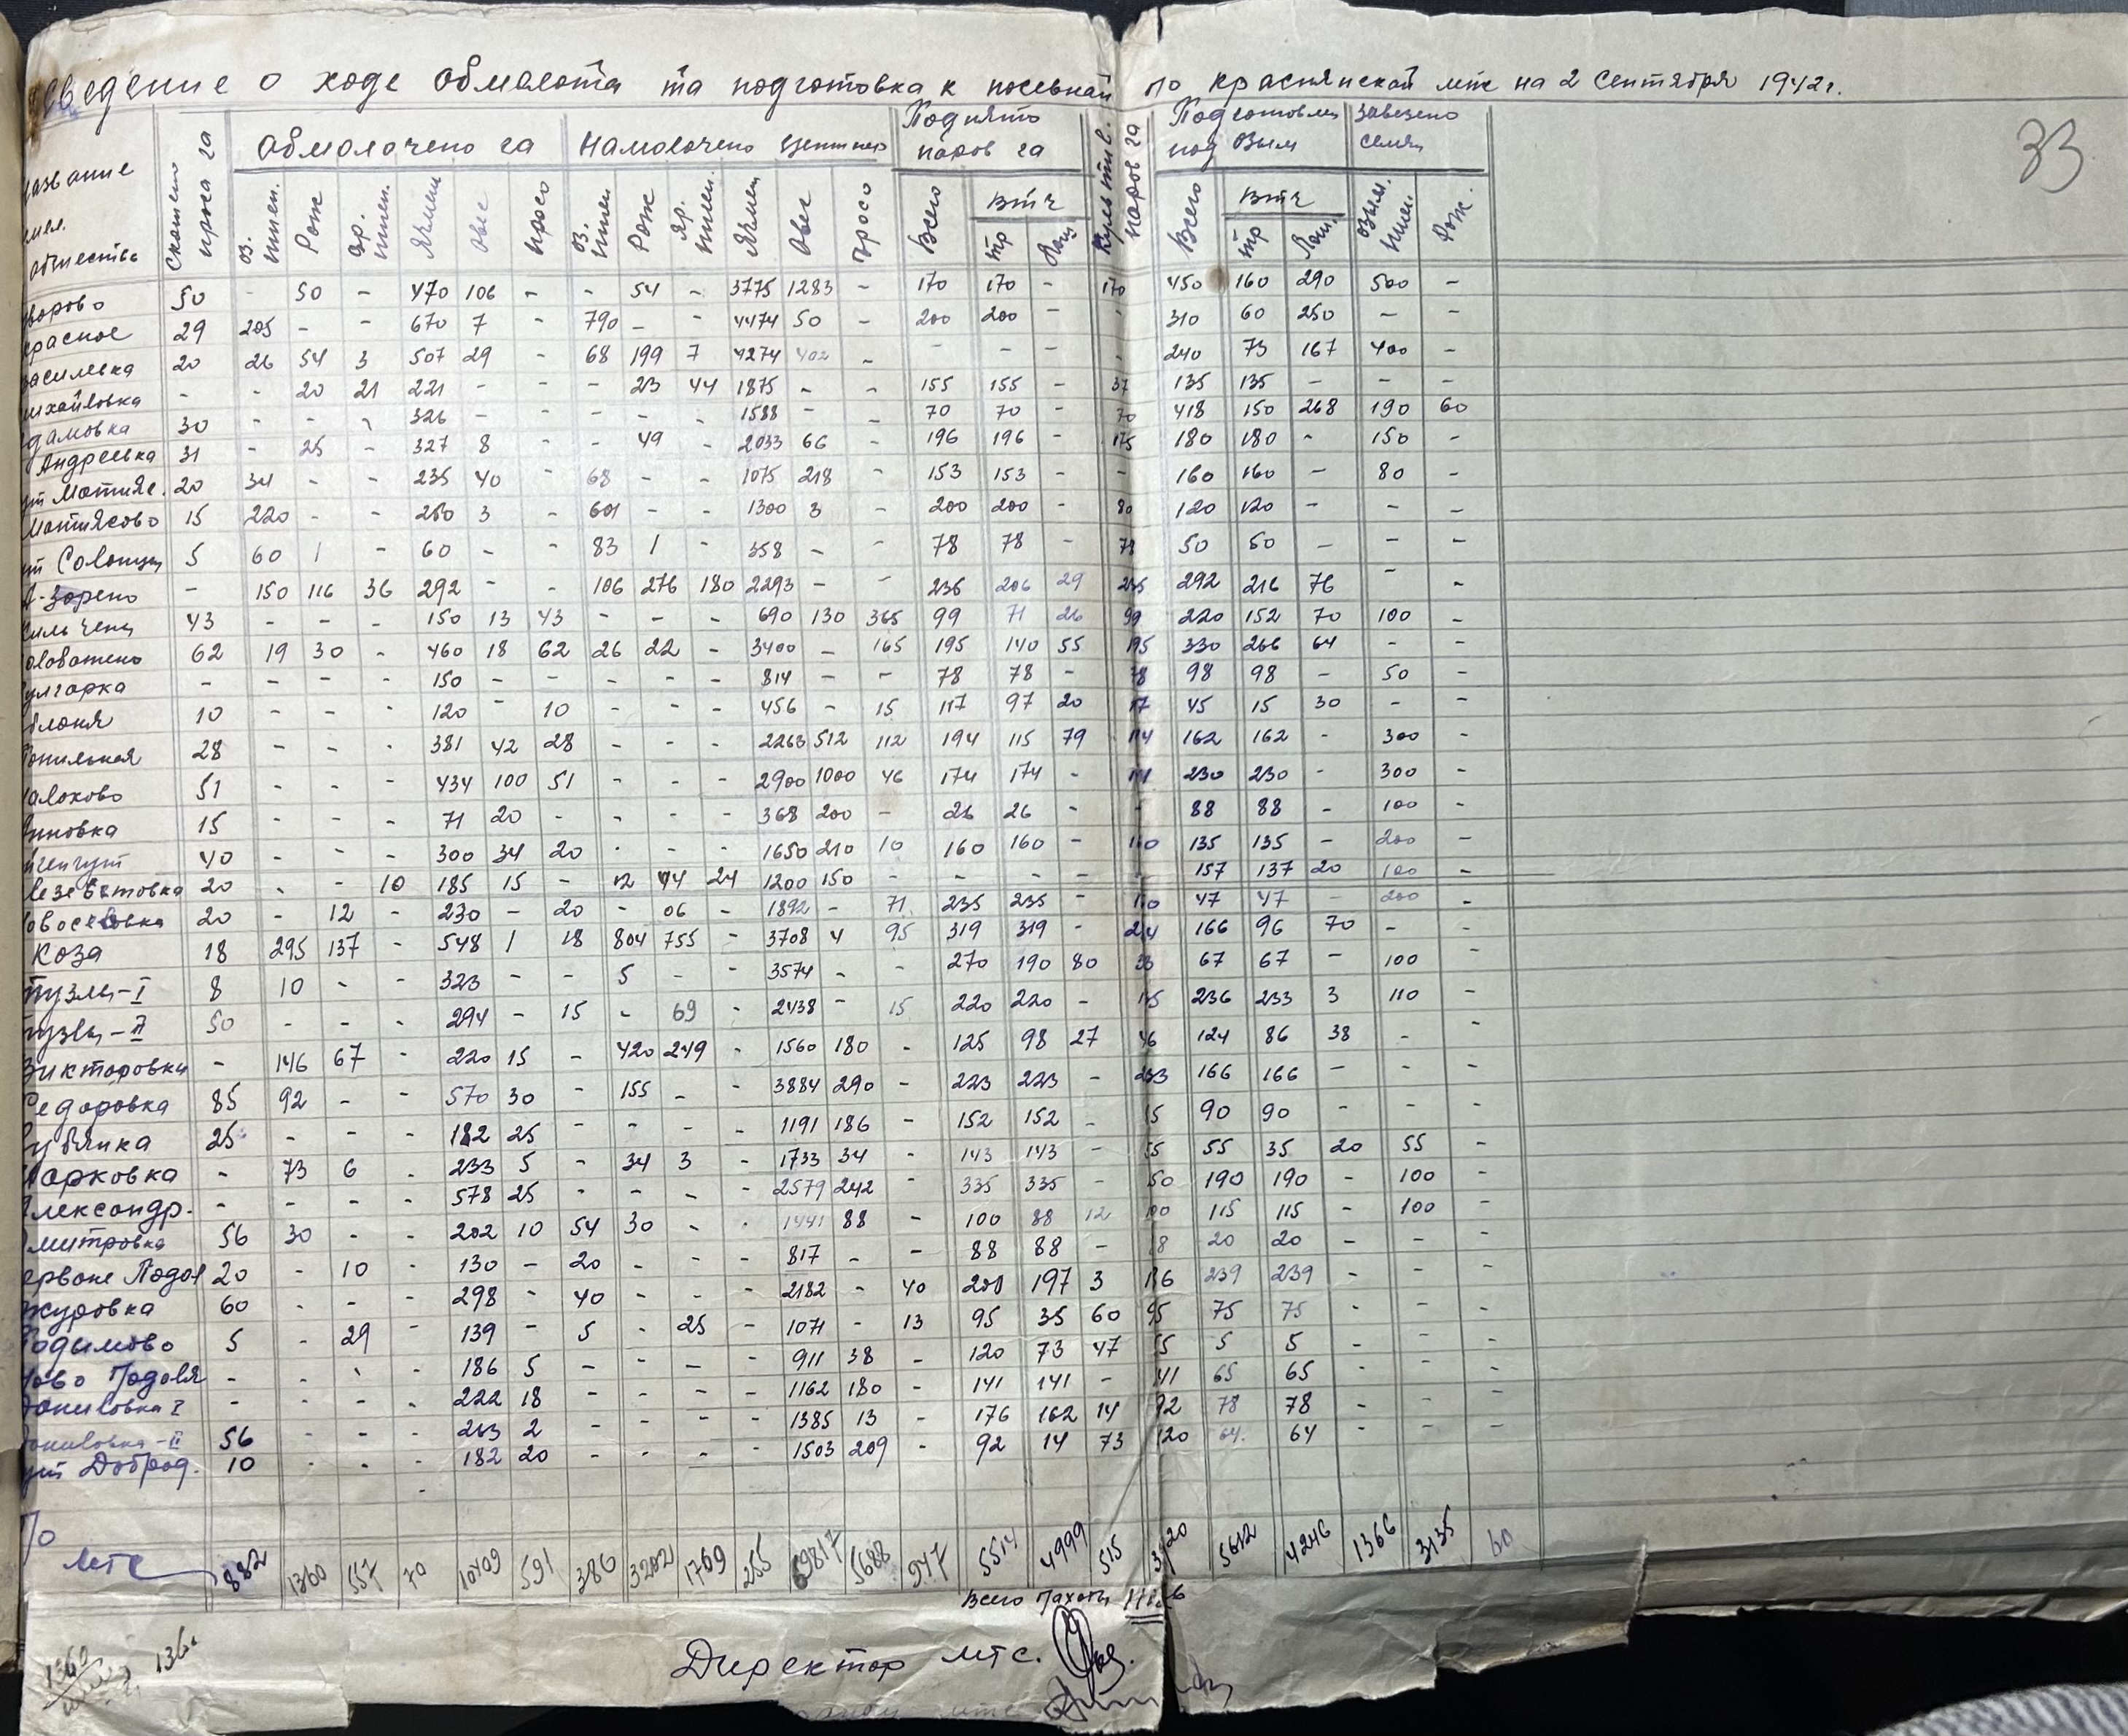 Сведение о ходе обмолота та подготовка к посевной по краснянской мтс на 2 сентября 1942г.
33
Название земл. общества | Скошено проса га | Обмолочено га | Намолочено центнер | Поднято паров га | Культив. паров га | Подготовлен под озым | Завезено семян
оз. пшен. | Рож | яр. пшен. | Ячмен | Овес | просо | оз. пшен | Рож | яр. пшен. | Ячмен | Овес | просо | Всего | втч тр | Лош | Всего | втч тр | Лош. | озым. пшен. | Рож.
ворово 50 - 50 - 470 106 - - 54 - 3775 1283 - 170 170 - 170 450 160 290 500 -
красное 29 205 - - 670 7 - 790 - - 4474 50 - 200 200 - - 310 60 250 - -
василевка 20 26 54 3 507 29 - 68 199 7 4274 402 - - - - - 240 73 167 400 -
михайловка - - 20 21 221 - - - 23 44 1875 - - 155 155 - 37 135 135 - - -
дамовка 30 - - - 326 - - - - - 1588 - - 70 70 - 70 418 150 268 190 60
Андреевка 31 - 25 - 327 8 - - 49 - 2033 66 - 196 196 - 175 180 180 - 150 -
Матияс. 20 34 - - 235 40 - 68 - - 1075 218 - 153 153 - - 160 160 - 80 -
Матиясово 15 220 - - 250 3 - 601 - - 1300 3 - 200 200 - 80 120 120 - - -
Солонци 5 60 1 - 60 - - 83 1 - 358 - - 78 78 - 78 50 50 - - -
зорено - 150 116 36 292 - - 106 276 180 2293 - - 235 206 29 235 292 216 76 - -
43 - - - 150 13 43 - - - 690 130 365 99 71 26 99 220 152 70 100 -
62 19 30 - 460 18 62 26 22 - 3400 - 165 195 140 55 195 330 266 64 - -
улгарка - - - - 150 - - - - - 814 - - 78 78 - 78 98 98 - 50 -
блоня 10 - - - 120 - 10 - - - 456 - 15 117 97 20 17 45 15 30 - -
28 - - - 381 42 28 - - - 2263 512 112 194 115 79 114 162 162 - 300 -
51 - - - 434 100 51 - - - 2900 1000 46 174 174 - 230 230 - 300 -
нновка 15 - - - 71 20 - - - - 368 200 - 26 26 - - 88 88 - 100 -
40 - - - 300 34 20 - - - 1650 210 10 160 160 - 110 135 135 - 200 -
лезаветовка 20 - - 10 185 15 - 12 44 24 1200 150 - - - - - 157 137 20 100 -
овоселовка 20 - 12 - 230 - 20 - 06 - 1892 - 71 235 235 - 47 47 - 200 -
коза 18 295 137 - 548 1 18 804 755 - 3708 4 95 319 319 - 166 96 70 - -
Пузлы-I 8 10 - - 323 - - 5 - - 3574 - - 270 190 80 67 67 - 100 -
Пузлы-II 50 - - - 294 - 15 - 69 - 2438 - 15 220 220 - 236 233 3 110 -
Викторовка - 146 67 - 220 15 - 420 249 - 1560 180 - 125 98 27 46 124 86 38 - -
Федоровка 85 92 - - 570 30 - 155 - - 3884 290 - 223 223 - 166 166 - - -
25 - - - 182 25 - - - - 1191 186 - 152 152 - 15 90 90 - - -
Марковка - 73 6 - 233 5 - 34 3 - 1733 34 - 143 143 - 55 55 35 20 55 -
Александр. - - - - 578 25 - - - - 2579 242 - 335 335 - 50 190 190 - 100 -
митровка 56 30 - - 202 10 54 30 - - 1441 88 - 100 88 12 100 115 115 - 100 -
ервоне Подол 20 - 10 - 130 - 20 - - - 817 - - 88 88 - 18 20 20 - - -
журовка 60 - - - 298 - 40 - - - 2182 - 40 200 197 3 239 239 - - -
одымово 5 - 29 - 139 - 5 - 25 - 1071 - 13 95 35 60 95 75 75 - - -
ново Подоля - - - - 186 5 - - - - 911 38 - 120 73 47 55 5 5 - - -
Даниловка I - - - - 222 18 - - - - 1162 180 - 141 141 - 141 65 65 - - -
Даниловка-II 56 - - - 243 2 - - - - 1385 13 - 176 162 14 92 78 78 - - -
Доброд. 10 - - - 182 20 - - - - 1503 209 - 92 14 73 120 64. 64 - - -
По мтс 882 1360 557 70 10409 591 386 3202 1769 255 69817 5688 947 5514 4999 515 3420 5612 4246 1366 3135 60
Всего пахоты
Директор мтс.
1360